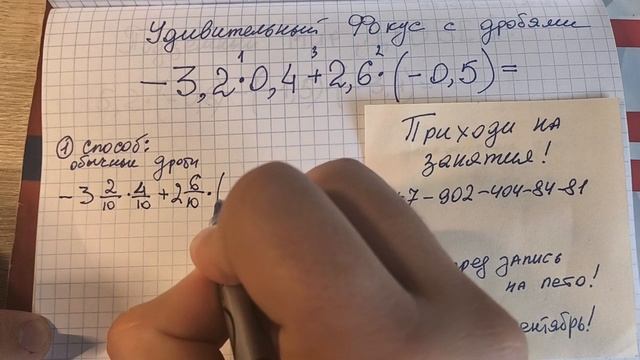 Удивительный Фокус с дробями
1 3 2
- 3,2 · 0,4 + 2,6 · (- 0,5) =
① способ:
обычные дроби
- 3 2/10 · 4/10 + 2 6/10 · (
Приходи на
занятия!
7-902-404-84-81
запись
на лето!